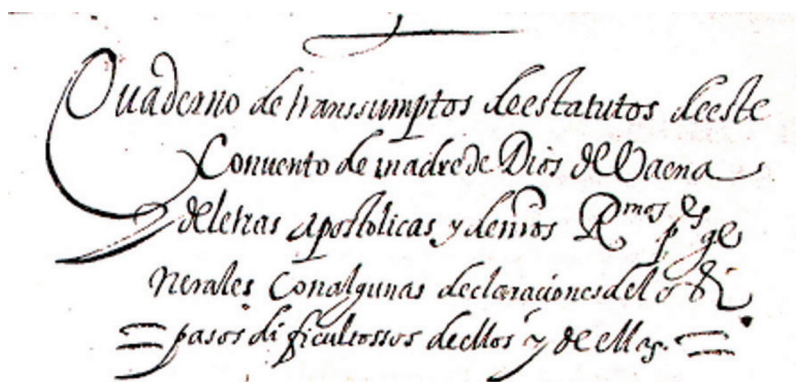 Quaderno de transsumptos de estatutos de este
Convento de madre de Dios de Vaena
de letras apostolicas y de nros Rmos ps ge
nerales con algunas declaraciones de
pasos dificultossos de ellos y de ellas.